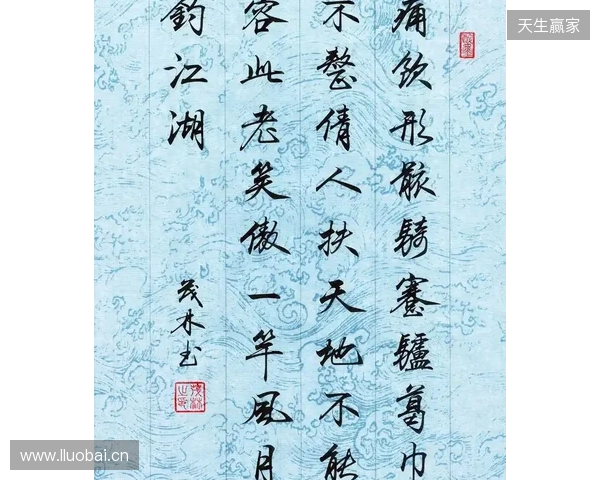 痛飲形骸騎蹇驢葛巾
不整倩人扶天地不能
容此老笑傲一竿風月
釣江湖
茂林书
天生赢家
www.lluobai.cn